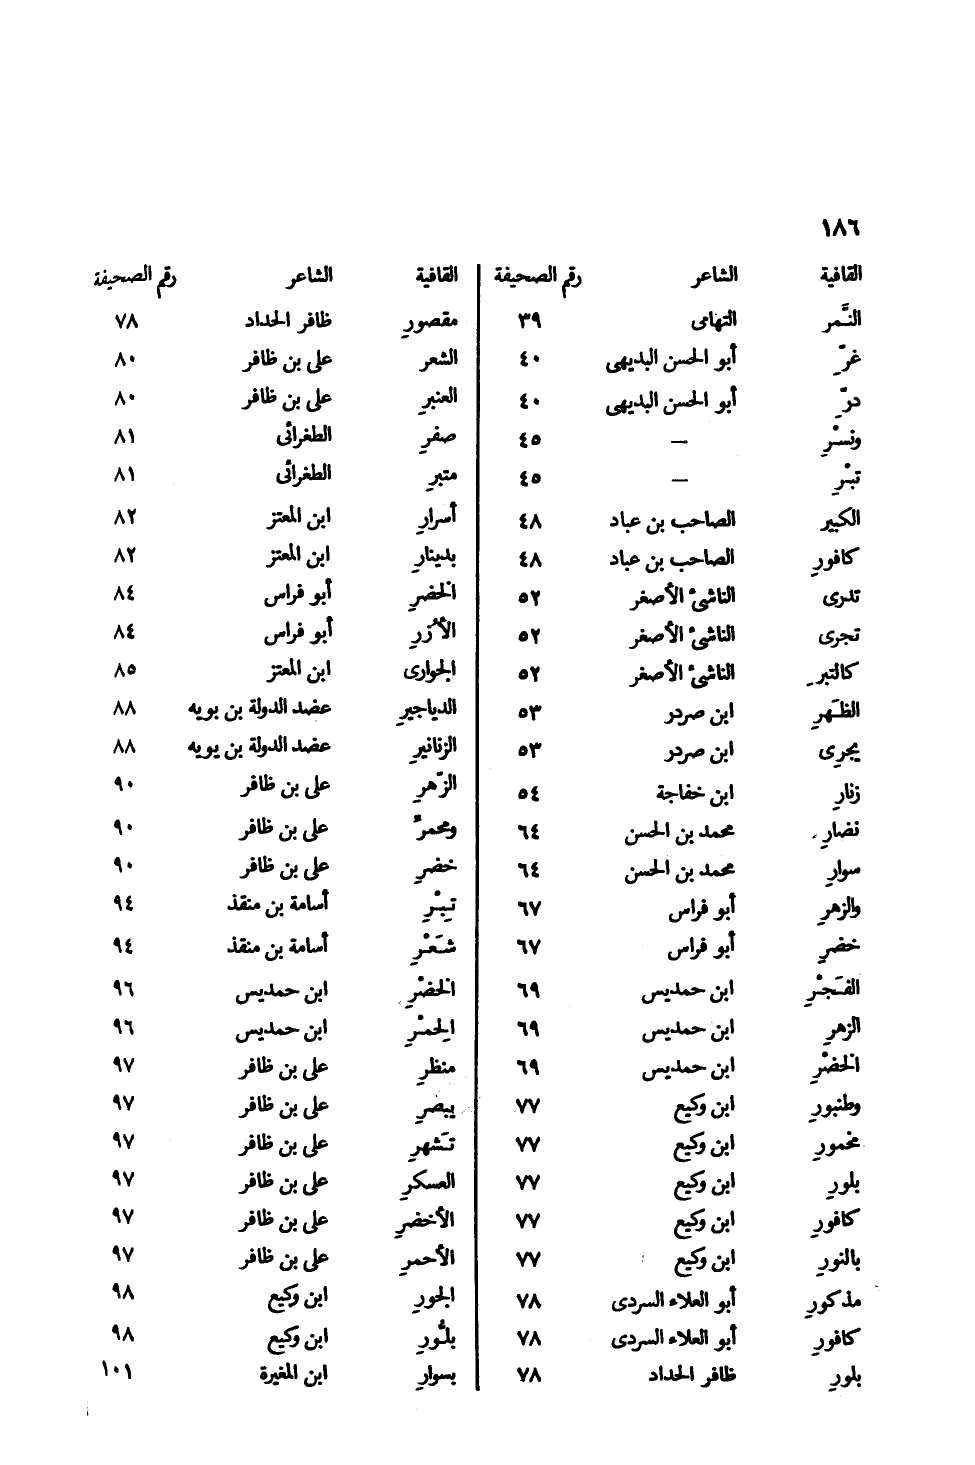 ١٨٦
القافية الشاعر رقم الصحيفة
النَّمر التهامى ٣٩
غرّ أبو الحسن البديهى ٤٠
درّ أبو الحسن البديهى ٤٠
ونسْرِ — ٤٥
تبْرِ — ٤٥
الكبير الصاحب بن عباد ٤٨
كافورِ الصاحب بن عباد ٤٨
تدرى الناشئ الأصغر ٥٢
تجرى الناشئ الأصغر ٥٢
كالتبرِ الناشئ الأصغر ٥٢
الظهرِ ابن صردر ٥٣
يجرِى ابن صردر ٥٣
زنارِ ابن خفاجة ٥٤
نضارِ محمد بن الحسن ٦٤
سوارِ محمد بن الحسن ٦٤
والزهرِ أبو فراس ٦٧
خضرِ أبو فراس ٦٧
الفَجْرِ ابن حمديس ٦٩
الزهرِ ابن حمديس ٦٩
الخضْرِ ابن حمديس ٦٩
وطنبورِ ابن وكيع ٧٧
مخمورِ ابن وكيع ٧٧
بلورِ ابن وكيع ٧٧
كافورِ ابن وكيع ٧٧
بالنورِ ابن وكيع ٧٧
مذكورِ أبو العلاء السردى ٧٨
كافورِ أبو العلاء السردى ٧٨
بلورِ ظافر الحداد ٧٨
القافية الشاعر رقم الصحيفة
مقصورِ ظافر الحداد ٧٨
الشعر على بن ظافر ٨٠
العنبرِ على بن ظافر ٨٠
صفرِ الطغرائى ٨١
متبرِ الطغرائى ٨١
أسرارِ ابن المعتز ٨٢
بدينارِ ابن المعتز ٨٢
الخضرِ أبو فراس ٨٤
الأُزرِ أبو فراس ٨٤
الجوارى ابن المعتز ٨٥
الدياجيرِ عضد الدولة بن بويه ٨٨
الزنانيرِ عضد الدولة بن بويه ٨٨
الزّهرِ على بن ظافر ٩٠
ومحمرّ على بن ظافر ٩٠
خضرِ على بن ظافر ٩٠
تِبْرِ أسامة بن منقذ ٩٤
شَعْرِ أسامة بن منقذ ٩٤
الخضْرِ ابن حمديس ٩٦
الخمْرِ ابن حمديس ٩٦
منظرِ على بن ظافر ٩٧
يبصرِ على بن ظافر ٩٧
تشهرِ على بن ظافر ٩٧
العسكرِ على بن ظافر ٩٧
الأخضرِ على بن ظافر ٩٧
الأحمرِ على بن ظافر ٩٧
الجورِ ابن وكيع ٩٨
بلُّورِ ابن وكيع ٩٨
بسوارِ ابن المغيرة ١٠١